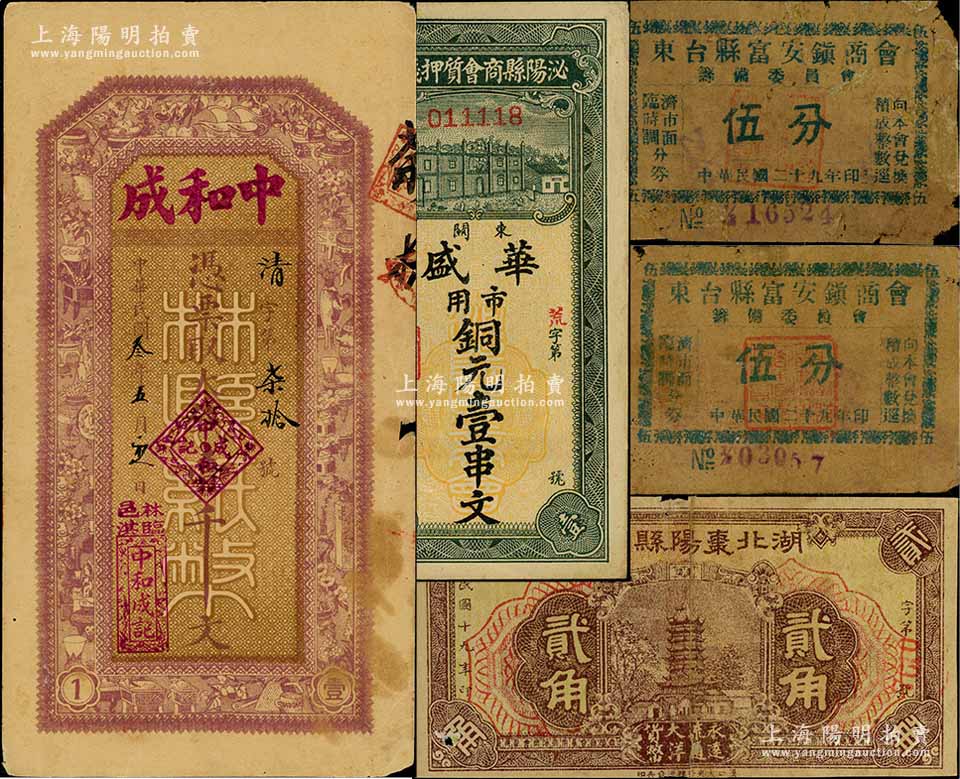 上海陽明拍賣
www.yangmingauction.com
中和成
清字第柒拾號
憑票
中華民國叁年五月
成記
千文
林縣鈔票
林臨
邑淇
中和成記
1
壹
泌陽縣商會質押
011118
東關
華盛
市用銅元壹串文
荒字第
號
壹
上海陽明拍賣
www.yangmingauction.com
伍
伍
東台縣富安鎮商會
籌備委員會
向本會兌換
積成整數逕
伍分
濟市面分券
臨時調
中華民國二十九年印
№ 416524
伍
伍
東台縣富安鎮商會
籌備委員會
向本會兌換
積成整數逕
伍分
濟市面分券
臨時調
中華民國二十九年印
№
湖北棗陽縣
貳
字第
號
貳角
貳角
民國十九年
永遠
兌
大洋
貨幣
上海陽明拍賣
www.yangmingauction.com